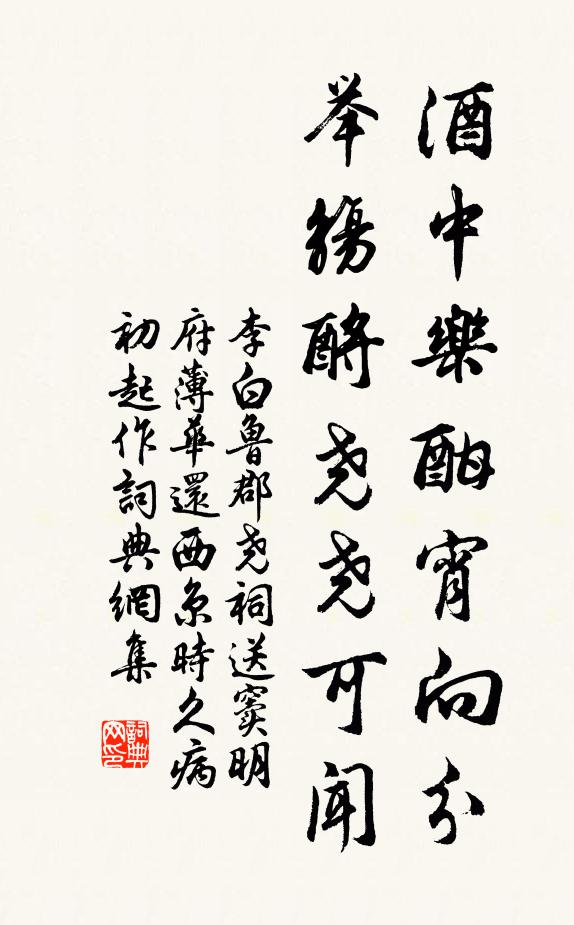 酒中樂酣宵向分
举觴酹尧尧可聞
李白魯郡尧祠送竇明
府薄華還西京時久病
初起作詞典網集
詞典
网印